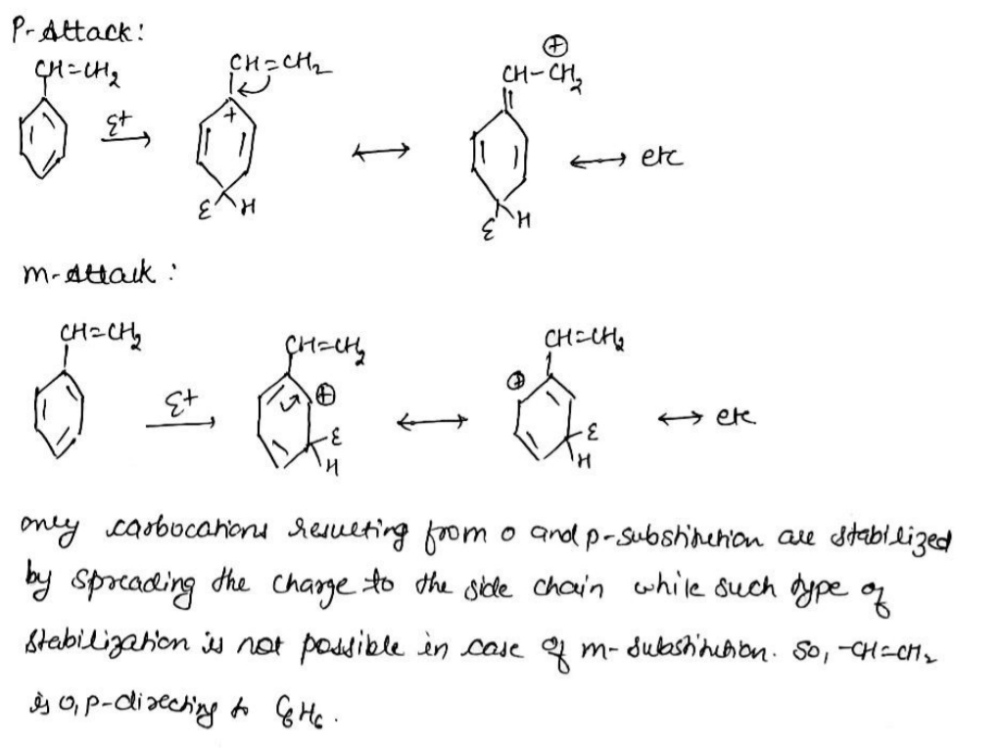 P-Attack:
CH=CH2 CH=CH2 CH-CH2 ⊕
E+ + ⟷ ⟷ etc
E H E H
m-Attack:
CH=CH2 CH=CH2 CH=CH2
E+ ⊕ ⟷ ⊕ ⟷ etc
E E
H H
only carbocations resulting from o and p-substitution are stabilized
by spreading the charge to the side chain while such type of
stabilization is not possible in case of m-substitution. So, -CH=CH2
is o,p-directing to C6H6.